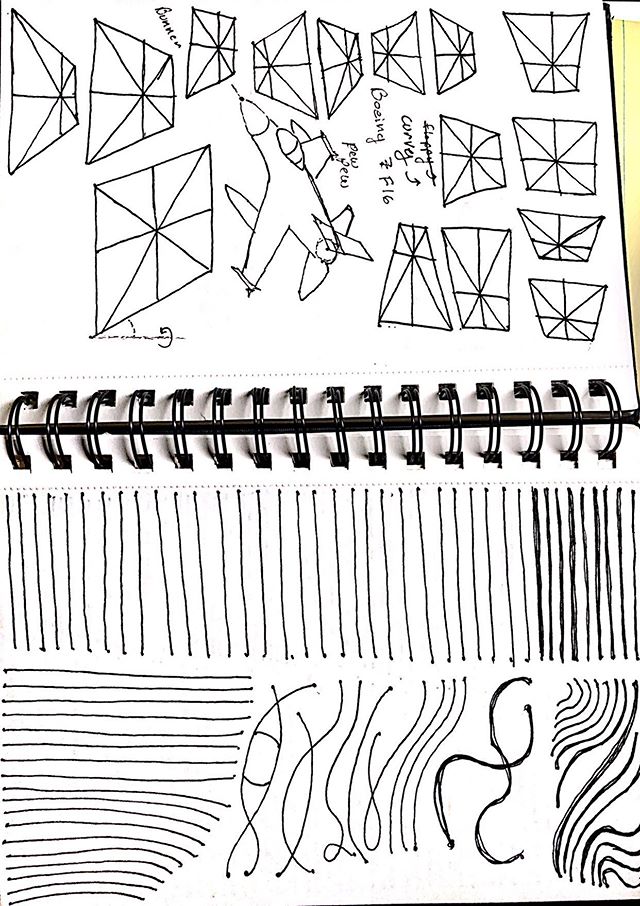 floppy
curvey
Boeing F16
pew
pew
Bummer